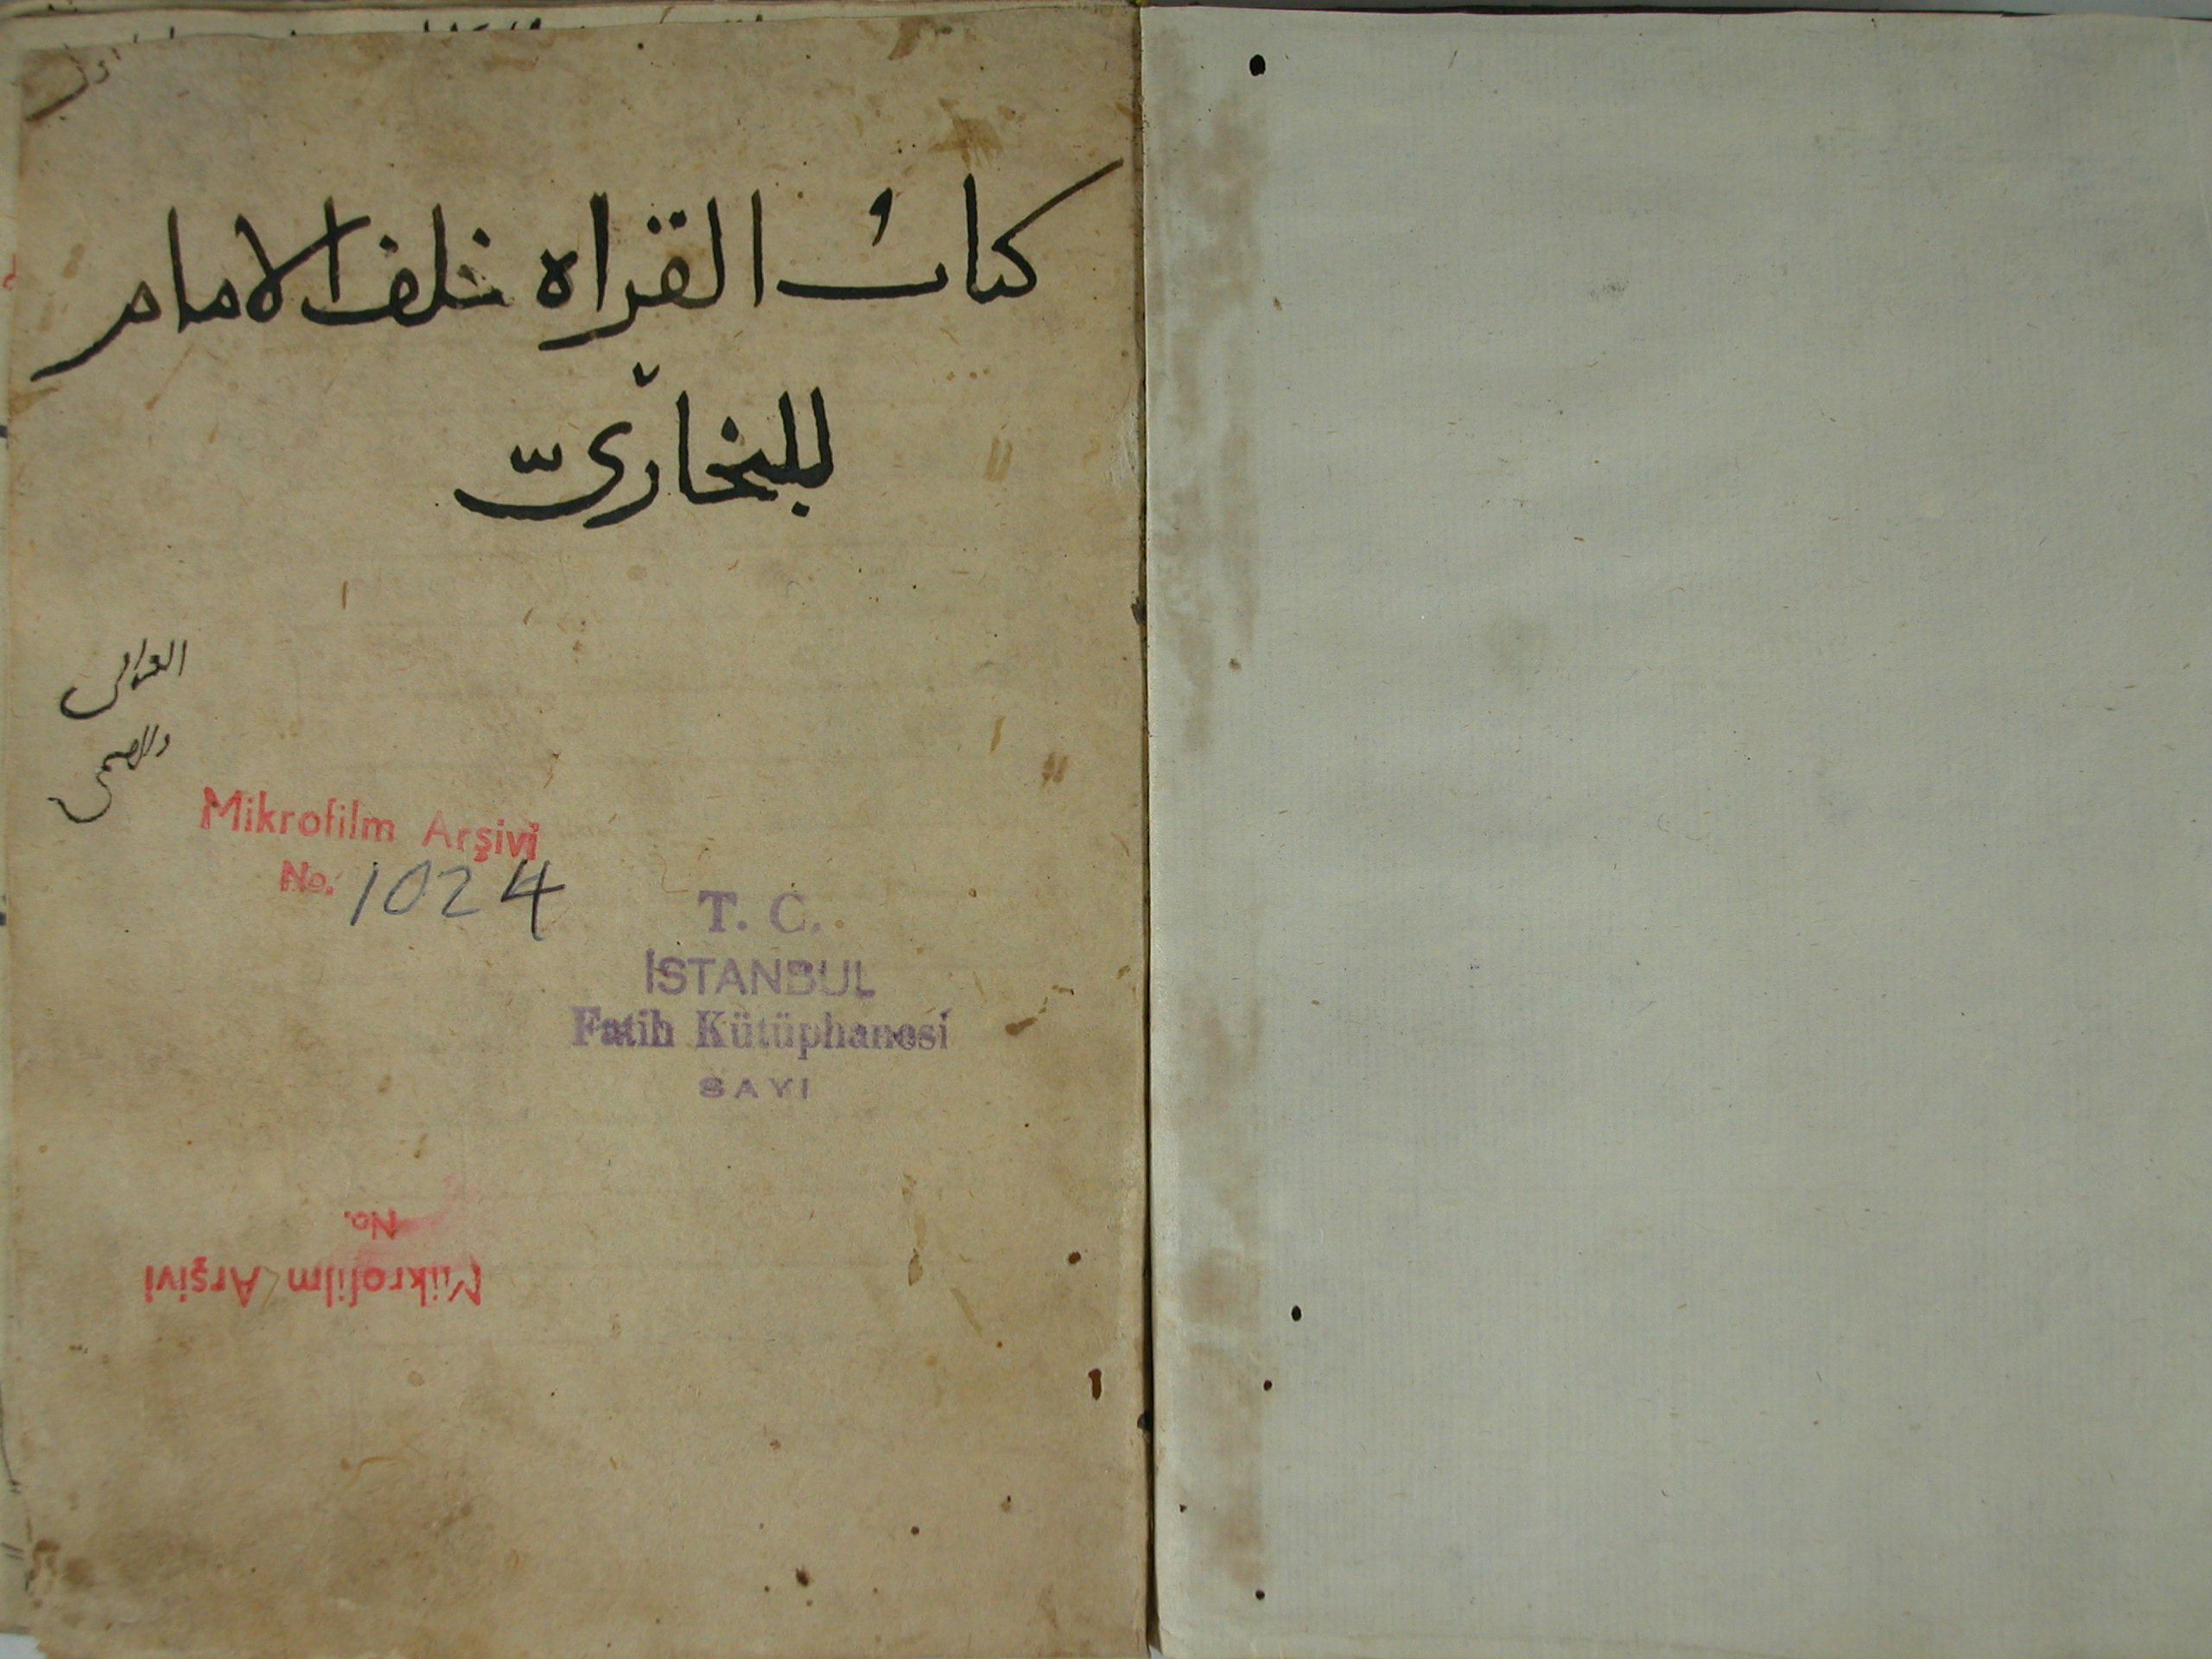 كتاب القراه خلف الامام
للبخاري
Mikrofilm Arşivi
No. 1024
T. C.
İSTANBUL
Fatih Kütüphanesi
SAYI
No.
Mikrofilm Arşivi